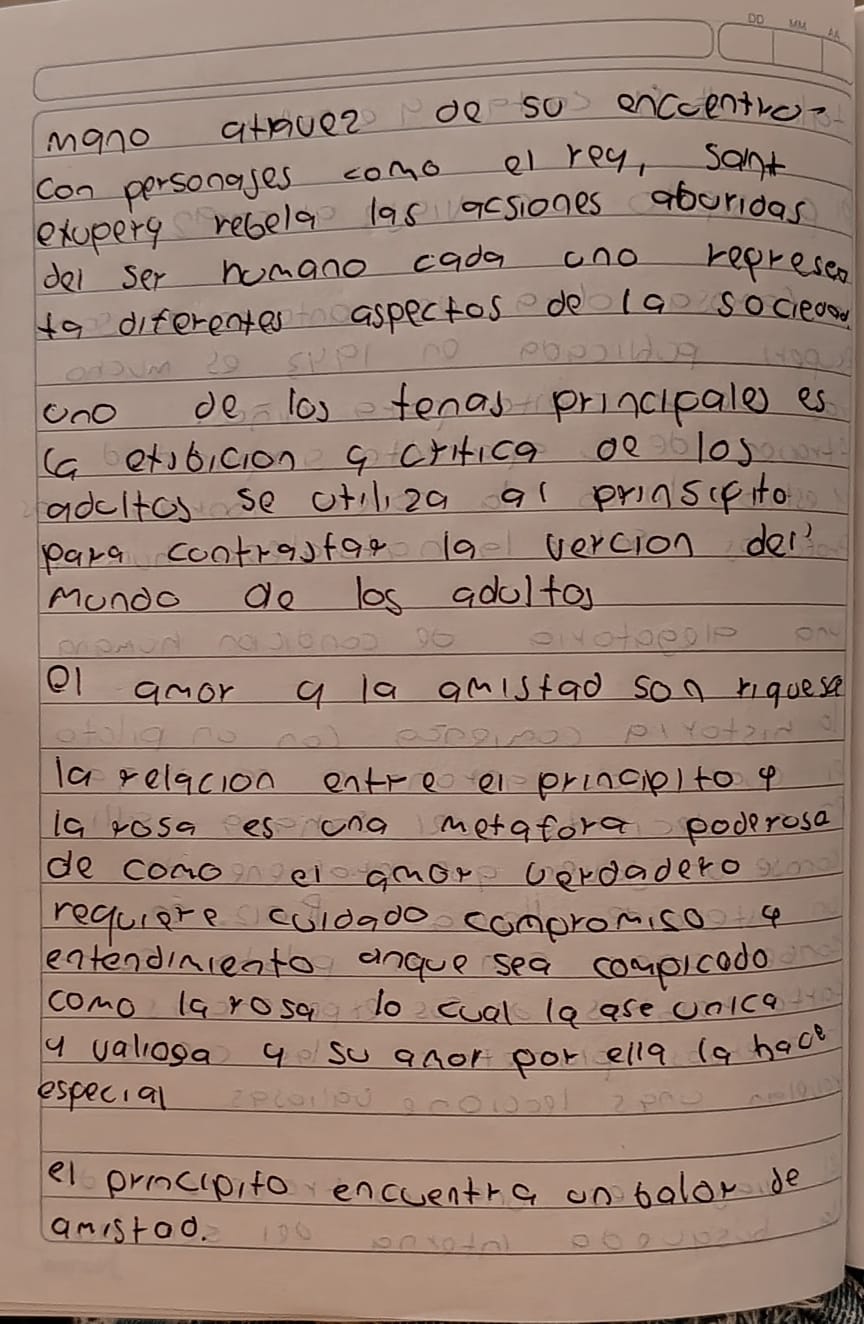 DD MM AA
mano atravez de su encuentro
con personages como el rey, sant
exupery rebela las acsiones aburidas
del ser humano cada uno represen
ta diferentes aspectos de la sociedad.
uno de los temas principales es
la exibicion y critica de los
adultos se utiliza al prinscipito
para contrastar la vercion del
mundo de los adultos
el amor y la amistad son riquesa
la relacion entre el principito y
la rosa es una metafora poderosa
de como el amor verdadero
requiere cuidado compromiso y
entendimiento anque sea compicado
como la rosa lo cual la ase unica
y valiosa y su amor por ella la hace
especial
el principito encuentra un balor de
amistad.